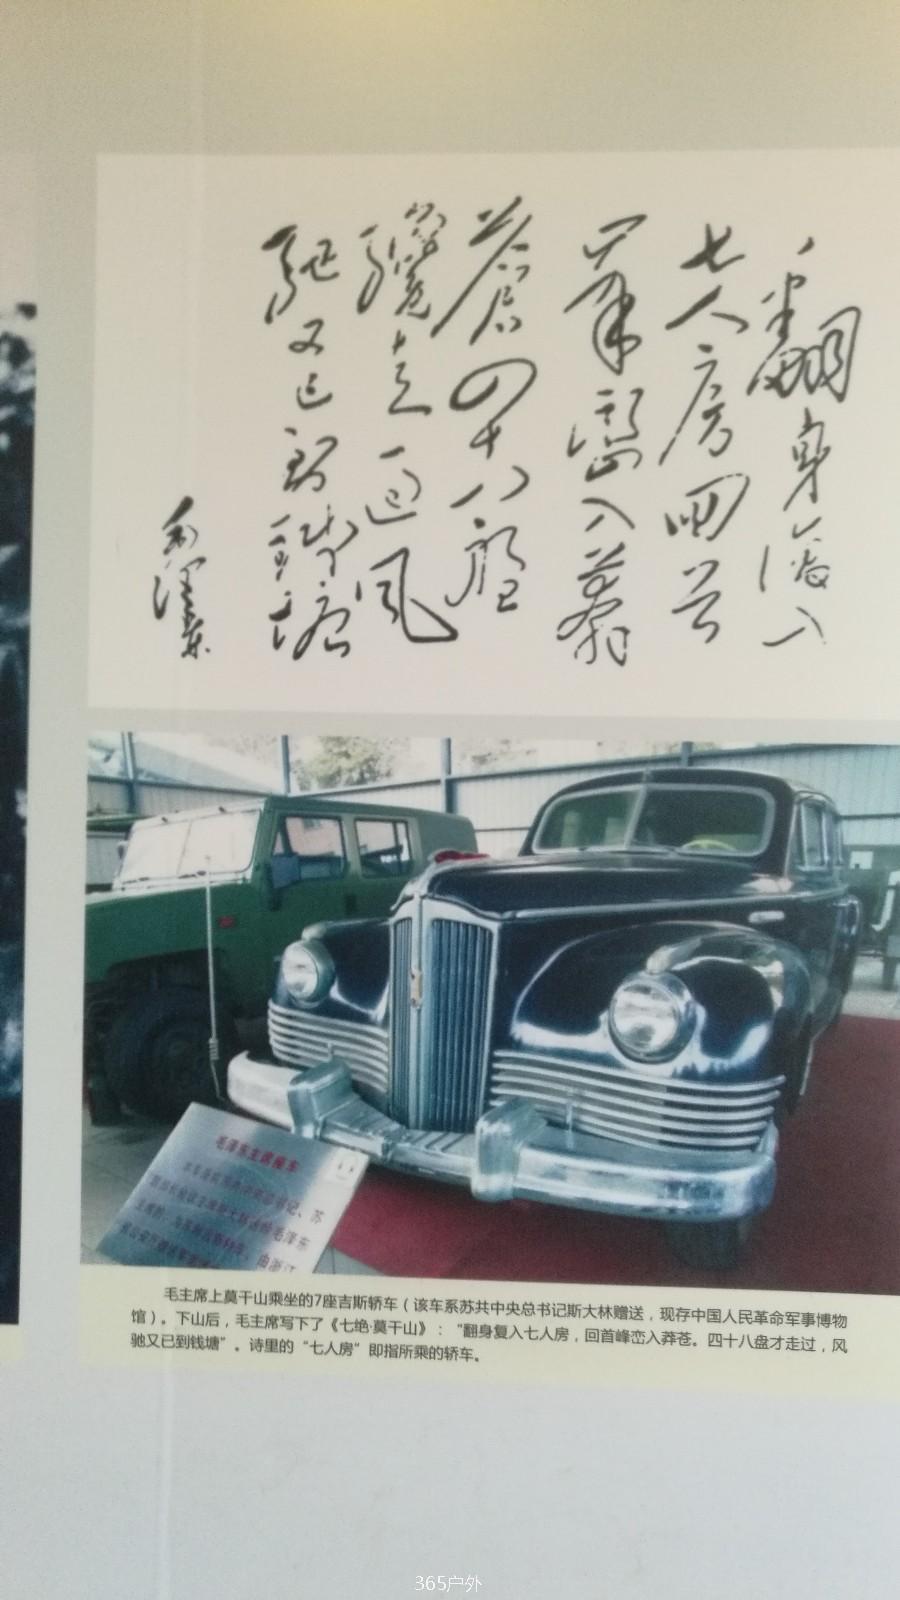 翻身復入
七人房回首
峯巒入莽
蒼四十八盤
纔走過風
馳又已到錢塘
毛澤东
毛泽东主席座车
总书记、苏
斯大林送给毛泽东
由浙江
毛主席上莫干山乘坐的7座吉斯轿车（该车系苏共中央总书记斯大林赠送，现存中国人民革命军事博物
馆）。下山后，毛主席写下了《七绝·莫干山》：“翻身复入七人房，回首峰峦入莽苍。四十八盘才走过，风
驰又已到钱塘”。诗里的“七人房”即指所乘的轿车。
365户外